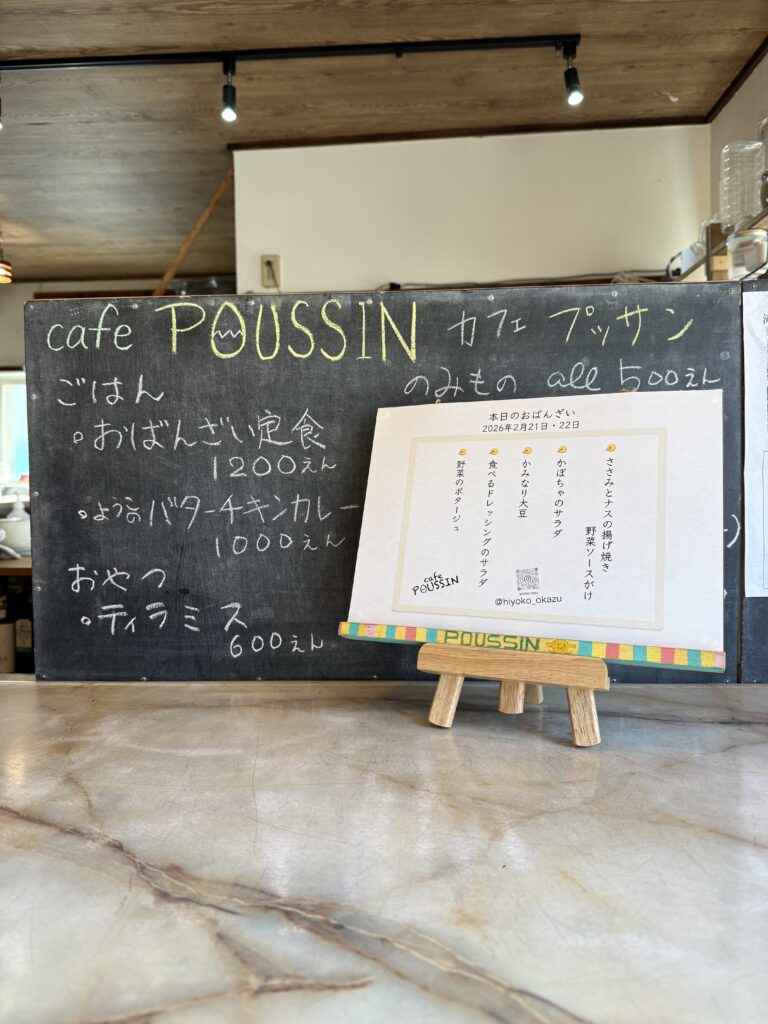 cafe POUSSIN カフェ プッサン
ごはん
のみもの all 500えん
・おばんざい定食
1200えん
・ようこのバターチキンカレー
1000えん
おやつ
・ティラミス
600えん
本日のおばんざい
2026年2月21日・22日
ささみとナスの揚げ焼き
野菜ソースがけ
かぼちゃのサラダ
かみなり大豆
食べるドレッシングのサラダ
野菜のポタージュ
cafe
POUSSIN
@hiyoko_okazu
POUSSIN